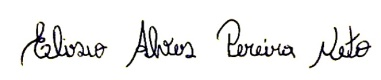 Elisio Alves Pereira Neto